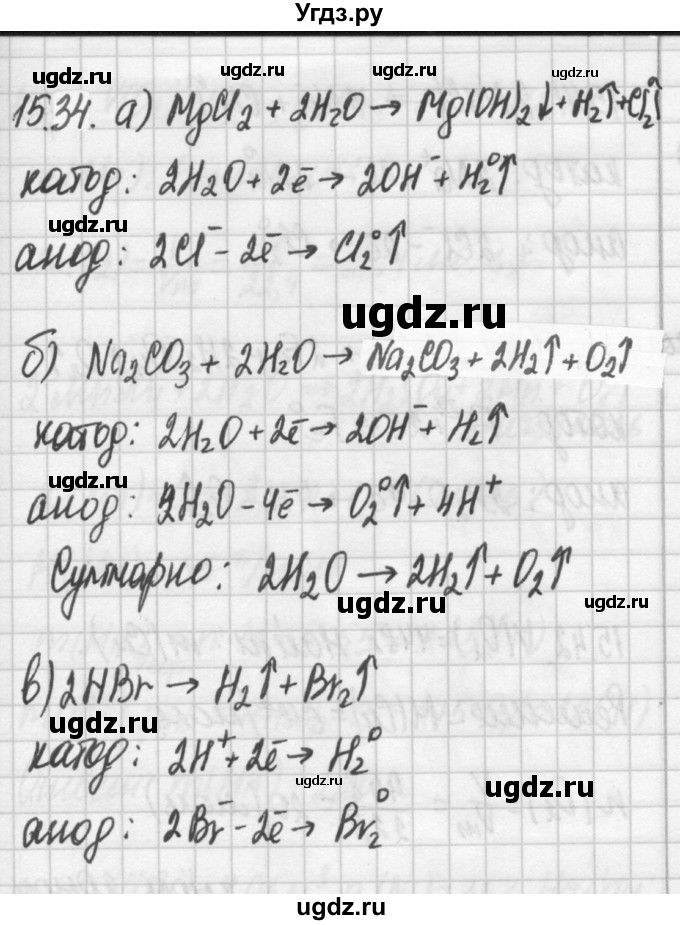 Угдз.ру
ugdz.ru ugdz.ru ugdz.ru
15.34. а) MgCl₂ + 2H₂O → Mg(OH)₂↓ + H₂⁰↑ + Cl₂⁰↑
катод: 2H₂O + 2ē → 2OH⁻ + H₂⁰↑
ugdz.ru
анод: 2Cl⁻ - 2ē → Cl₂⁰↑
ugdz.ru
б) Na₂CO₃ + 2H₂O → Na₂CO₃ + 2H₂↑ + O₂↑
катод: 2H₂O + 2ē → 2OH⁻ + H₂↑
ugdz.ru
анод: 2H₂O - 4ē → O₂⁰↑ + 4H⁺
Суммарно: 2H₂O → 2H₂↑ + O₂↑
ugdz.ru ugdz.ru
в) 2HBr → H₂↑ + Br₂↑
ugdz.ru
катод: 2H⁺ + 2ē → H₂⁰
ugdz.ru ugdz.ru
анод: 2Br⁻ - 2ē → Br₂⁰
ugdz.ru